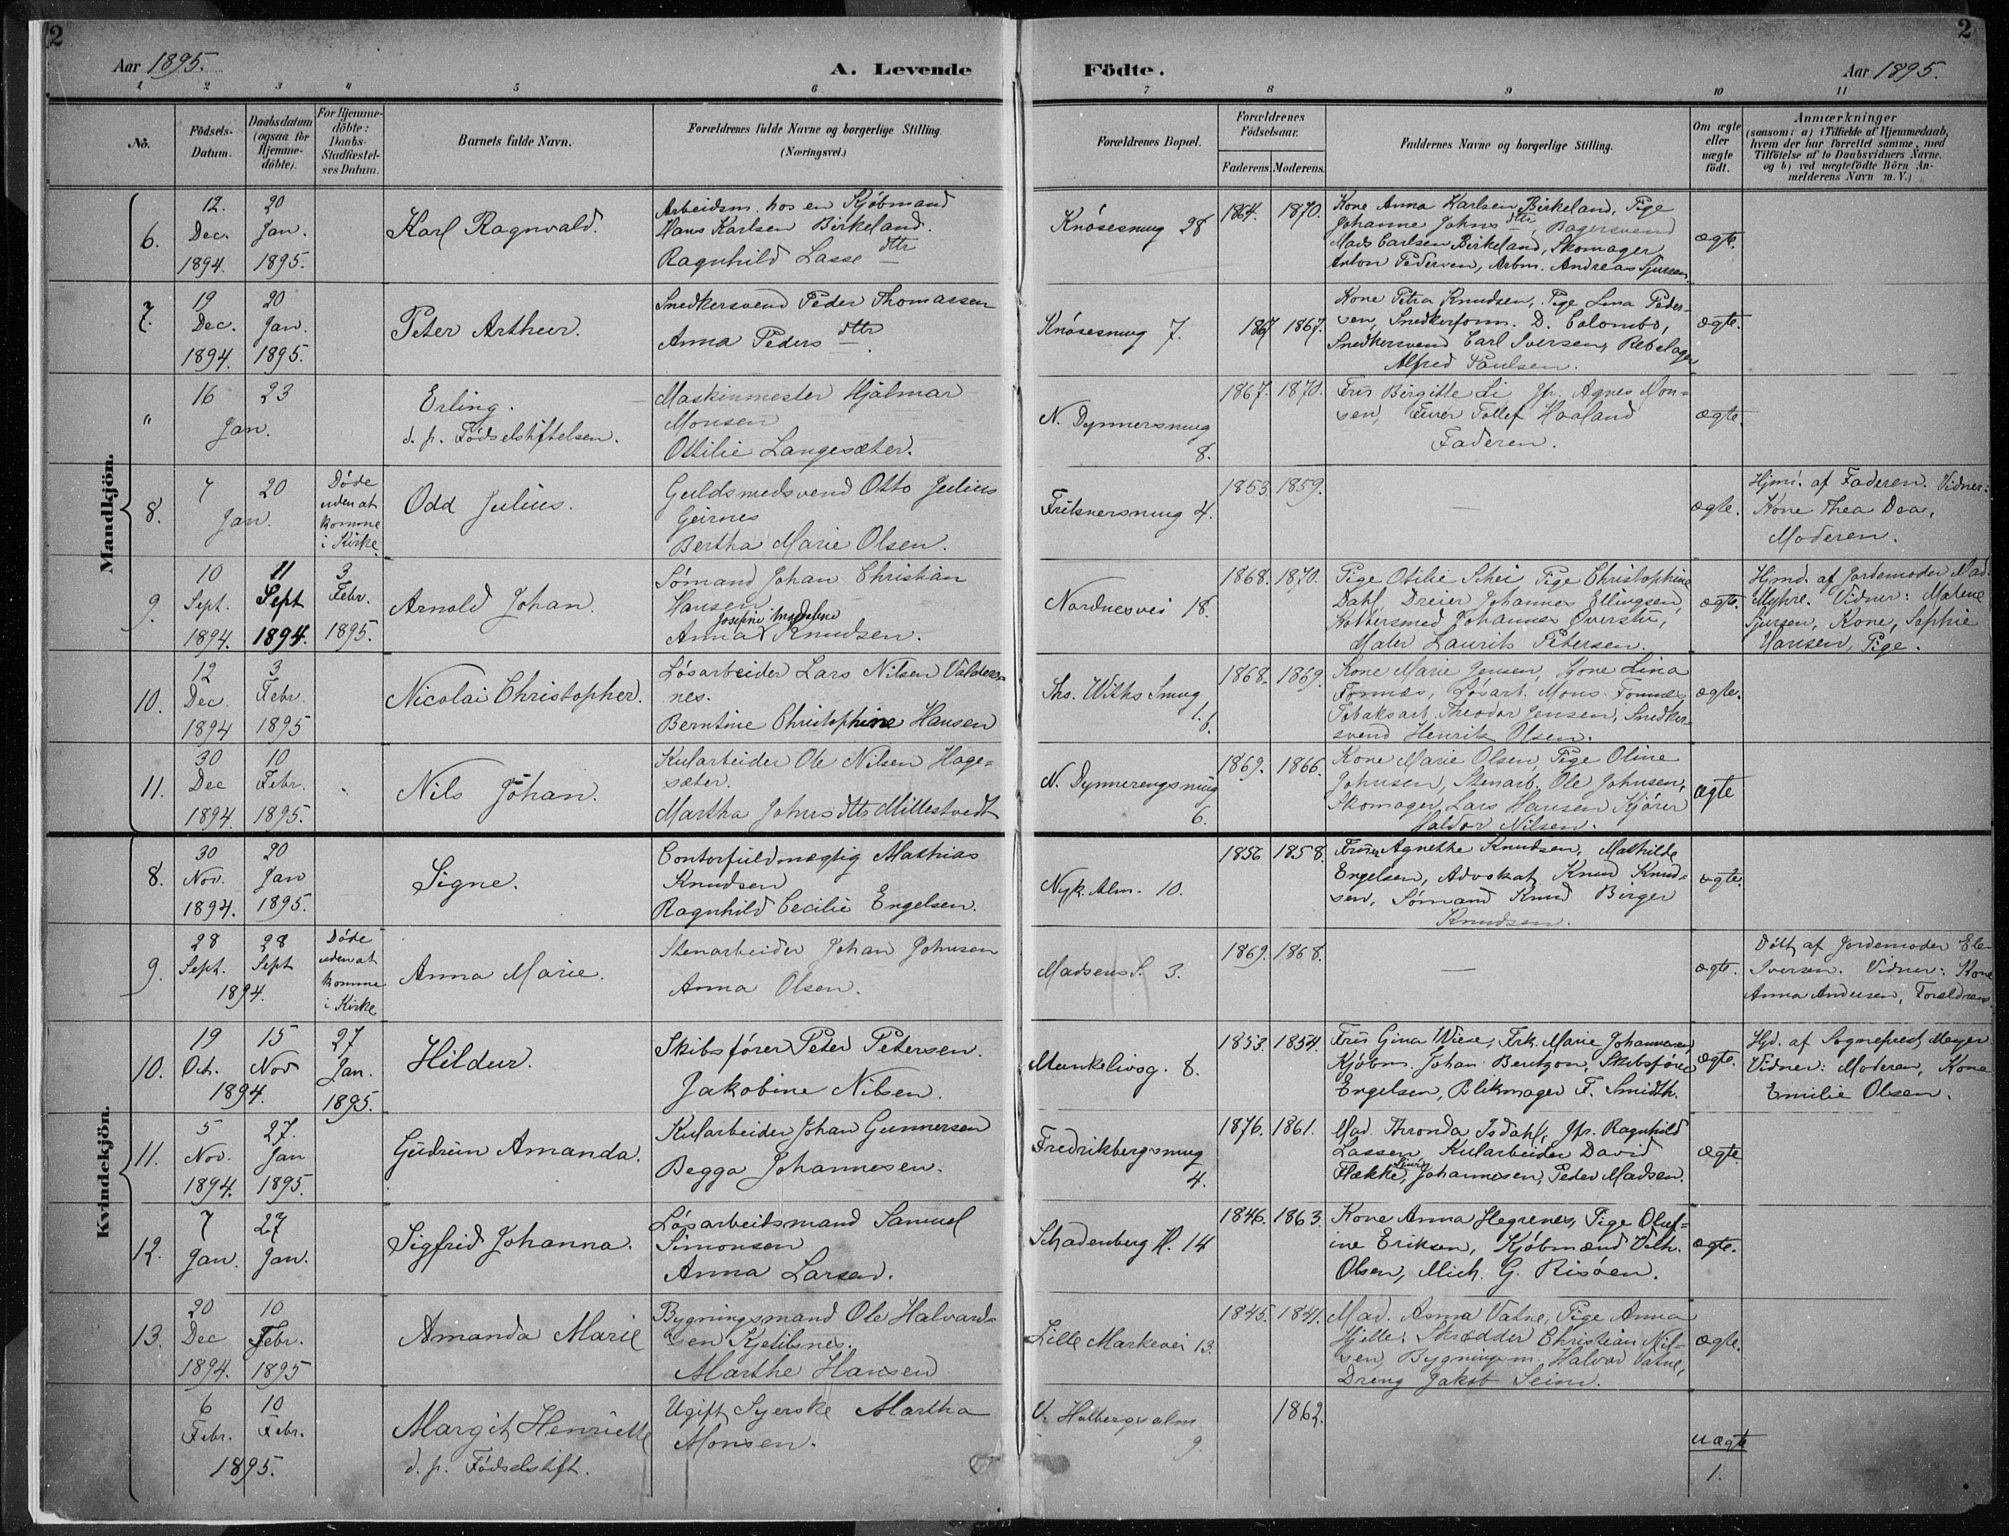 2
Aar 1895.
A. Levende
Födte.
Aar 1895.
2
1 2 3 4 5 6 7 8 9 10 11
No.
Födsels-
Datum.
Daabsdatum
(ogsaa for
Hjemme-
döbte).
For Hjemme-
döbte:
Daabs-
Stadfæstel-
ses Datum.
Barnets fulde Navn.
Forældrenes fulde Navne og borgerlige Stilling.
(Næringsvei.)
Forældrenes Bopæl.
Forældrenes
Födselsaar.
Faderens.
Moderens.
Faddernes Navne og borgerlige Stilling.
Om ægte
eller
uægte
födt.
Anmærkninger
(saasom: a) i Tilfælde af Hjemmedaab,
hvem der har forrettet samme, med
Tilföielse af to Daabsvidners Navne.
og b) ved uægtefödte Börn An-
melderens Navn m. V.)
Mandkjön.
6.
12.
Dec.
1894.
20
Jan.
1895.
Karl Ragnvald.
Arbeidsm. hos en Kjöbmand
Hans Karlsen Birkeland.
Ragnhild Lasse dttr
Knösesmug 28
1864.
1870.
Kone Anna Karlsen Birkeland, Pige
Johanne Johns dttr, Bagersvend
Mads Carlsen Birkeland, Skomager
Anton Pedersen, Arbm. Andreas Sjursen
ægte.
7.
19
Dec.
1894
20
Jan.
1895.
Peter Arthur.
Snedkersvend Peder Thomassen
Anna Peders dttr.
Knösesmug 7.
1867
1867.
Kone Petra Knudsen, Pige Lina Peder-
sen, Snedkerform. D. Colombo,
Snedkersvend Carl Iversen, Rebslager
Alfred Paulsen.
ægte.
"
16
23
Jan.
Erling.
d. p. Födselstiftelsen.
Maskinmester Hjalmar
Monsen
Ottilie Langesæter.
N. Dynnersmug
8.
1867.
1870.
Frus Birgitte Li Jfr. Agnes Mon-
sen, Furer Tollef Haaland
Faderen.
ægte.
8.
7
20
Jan.
Döde
uden at
komme
i Kirke
Odd Julius.
Guldsmedsvend Otto Julius
Geirnes
Bertha Marie Olsen.
Fritznersmug 4.
1853.
1859.
—
ægte.
Hjm. af Faderen. Vidner:
Kone Thea Daa,
Moderen.
9.
10
Sept.
1894.
11
Sept
1894.
3
Febr.
1895.
Arnold Johan.
Sømand Johan Christian
Hansen
Josefine Magdalene
Anna Knudsen.
Nordnesvei 18.
1868.
1870.
Pige Otilie Schei Pige Christophine
Dahl, Dreier Johannes Ellingsen,
Kobbersmed Johannes Øverstu,
Maler Laurits Petersen.
ægte.
Hjmd. af Jordemoder Mad.
Myhre. Vidner: Malene
Sjursen, Kone, Sophie
Hansen, Pige.
10.
12
Dec.
1894
3
Febr.
1895
Nicolai Christopher.
Løsarbeider Lars Nilsen Valders-
nes.
Berntine Christophine Hansen
Ths. Withs Smug
1. b.
1868.
1869
Kone Marie Jensen, Kone Lina
Formæs, Løsarb. Mons Formæs
Tobaksarb. Theodor Jensen, Snedker-
svend Henrik Olsen.
ægte.
11.
30
Dec
1894.
10
Febr.
1895.
Nils Johan.
Kularbeider Ole Nilsen Hage-
sæter.
Martha Johns dttr Millestvedt
N. Dynnerengsmug
6.
1869.
1866.
Kone Marie Olsen, Pige Oline
Johnsen, Stenarb. Ole Johnsen,
Skomager Lars Hansen Kjörer
Haldor Nilsen.
ægte
Kvindekjön.
8.
30
Nov.
1894.
20
Jan
1895.
Signe.
Contorfuldmægtig Mathias
Knudsen
Ragnhild Cecilie Engelsen.
Nyk. Alm. 10.
1856
1858.
Fruer Agnethe Knudsen, Mathilde
Engelsen, Advokat Knud Knud-
sen, Sømand Knud Birger
Knudsen.
ægte.
9.
28
Sept.
28
Sept
1894.
Døde
uden at
komme
i Kirke
Anna Marie.
Stenarbeider Johan Johnsen
Anna Olsen.
Madsens S. 3.
1869.
1868.
—
ægte.
Døbt af Jordemoder Ele-
Iversen. Vidner: Kone
Anna Andersen, Forældrene
10.
19
Oct.
15
Nov
1894.
27
Jan.
1895.
Hildur.
Skibsfører Peter Petersen.
Jakobine Nilsen.
Munkelivsg. 8.
1853.
1854.
Frus Gina Wiese, Frk. Marie Johannesen,
Kjøbm. Johan Bentzon, Skibsfører
Engelsen, Blikmager F. Smidth.
ægte.
Hjd. af Sogneprest Meyer
Vidner: Moderen, Kone
Emilie Olsen.
11.
5
Nov.
1894.
27.
Jan
1895.
Gudrun Amanda.
Kularbeider Johan Gunnersen
Begga Johannesen.
Fredrikbergsmug
4.
1876.
1861.
Mad. Thronda Isdahl, Jfr. Ragnhild
Lassen, Kularbeider David
Flække, Johannesen, Peder Madsen.
ægte
12.
7
Jan.
27
Jan.
Sigfrid Johanna.
Løsarbeidsmand Samuel
Simonsen
Anna Larsen.
Schadenberg H. 14
1846.
1863.
Kone Anna Hegrenes, Pige Oluf-
ine Eriksen, Kjøbmænd Vilh.
Olsen, Mich. G. Risøen.
ægte.
13.
20
Dec
1894.
10
Febr.
1895
Amanda Marie
Bygningsmand Ole Halvard-
sen Kjetilsnes.
Marthe Hansen
Lille Markevei 13.
1845.
1841.
Mad. Anna Vatne, Pige Anna
Hjelle, Skrædder Christian Nil-
sen, Bygningsm. Halvor Vatne,
Dreng Jakob Seim.
ægte.
6
Febr.
10
Febr.
1895.
Margit Henriette
d. p. Födselstift.
Ugift Syerske Martha
Monsen.
V. Holbergsalm.
9.
1862.
uægte
1.